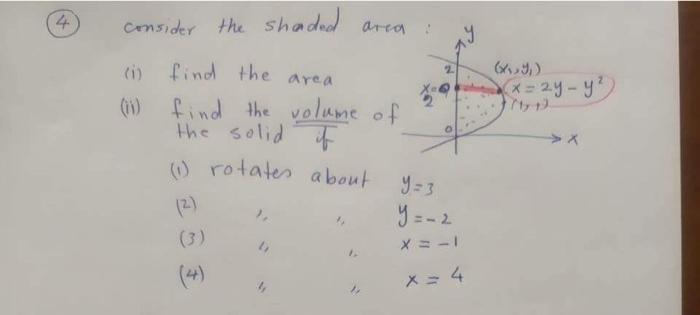 4 consider the shaded area :
(i) find the area
(ii) find the volume of
the solid if
(1) rotates about y=3
(2) " " y=-2
(3) " " x=-1
(4) " " x=4
y
2
(x₁,y₁)
x=0
x=2y-y²
2
(1,1)
0
x